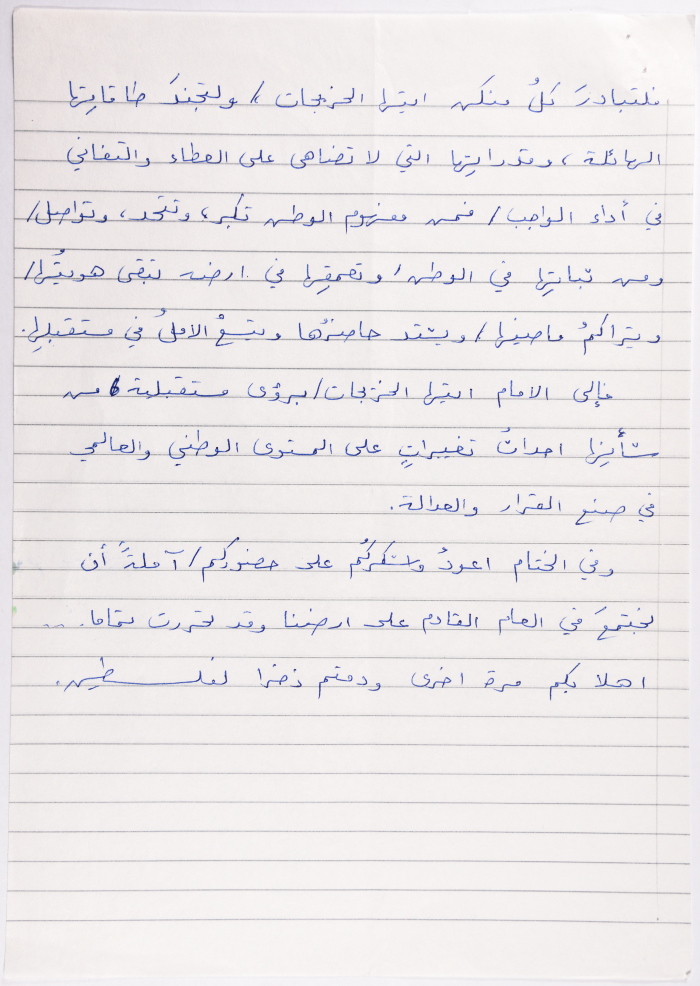 فلتبادرَ كلُ منكن ايتها الخريجات / ولتجندَ طاقاتِها
الهائلة ، وقدراتِها التي لا تضاهى على العطاء والتفاني
في أداء الواجب / فمن مفهوم الوطن تكبر ، وتتحد ، وتواصل /
ومن ثباتِها في الوطن / وتعمقِها في ارضه تبقى هويتُها /
ويتراكمُ ماضيها / ويشتد حاضرُها ويتسعْ الاملُ في مستقبلِها .
فإلى الامام ايتها الخريجات / برؤى مستقبلية من
شأنِها احداثُ تغييراتٍ على المستوى الوطني والعالمي
في صنع القرار والعدالة .
وفي الختام اعودُ واشكركُم على حضوركم / آملةً أن
نجتمعَ في العام القادم على ارضنا وقد تحررت تماما ...
اهلا بكم مرة اخرى ودمتم ذخرا لفلسطين .